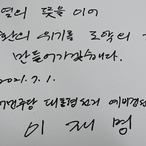 열의 뜻을 이어
란의 위기를 도약의
만들어가겠습니다.
2021. 7. 1.
민주당 대통령선거 예비경선
이 재 명